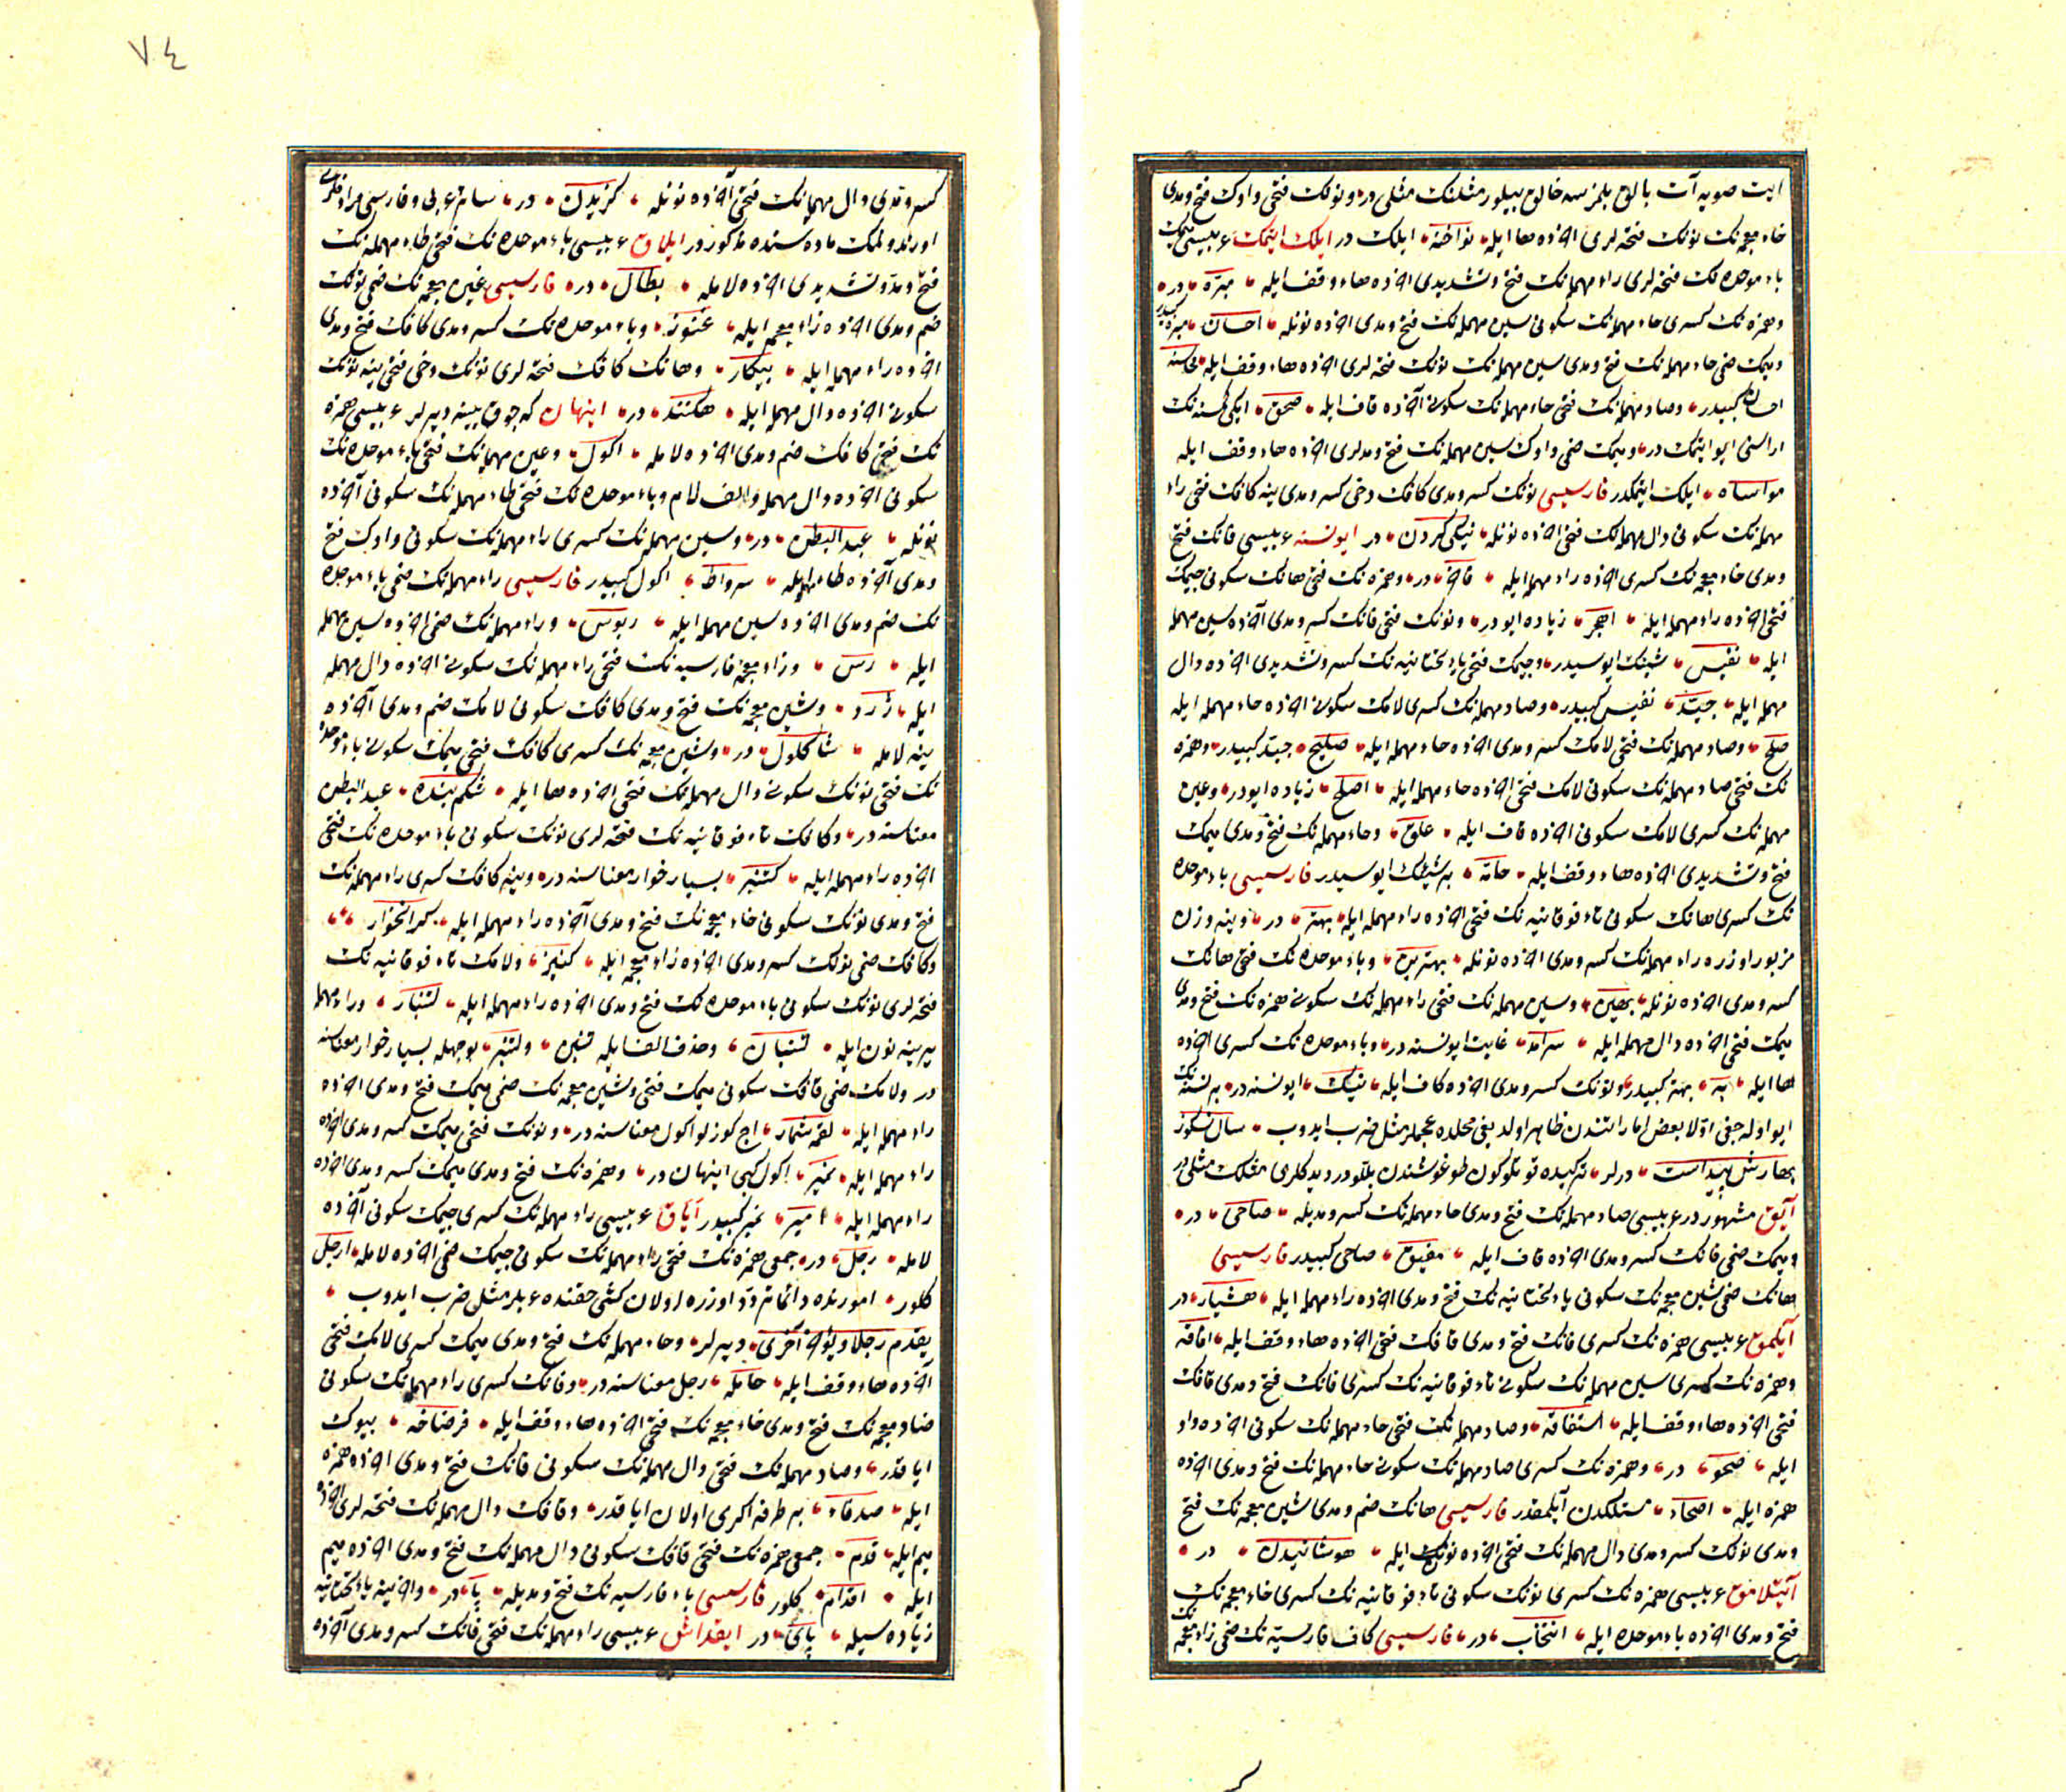 ايت صويه آت بالق بلمزسه خالق بيلور مثلنك مثلى در ونونك فتحى واوك فتح ومدى
خاء معجمه نك نونك فتحه لرى اخرده ها ايله نواخته ايلك در ايلك ايتمك عربيسى ميمك
باء موحده نك فتحه لرى راء مهمله نك فتح وتشديدى اخرده هاء وقف ايله مبرّة در
وهمزه نك كسرى حاء مهمله نك سكونى سين مهمله نك فتح ومدى اخرده نونله احسان مبرة كبيدر
وميمك ضمى حاء مهمله نك فتح ومدى سين مهمله نك نونك فتحه لرى اخرده هاء وقف ايله محاسنه
احسان كبيدر وصاد مهمله نك فتحى حاء مهمله نك سكونى آخرده قاف ايله صحق ايكى كمسنه نك
اراسنى ايو ايتمك در وميمك ضمى واوك سين مهمله نك فتح ومدلرى اخرده هاء وقف ايله
مواساه ايلك ايتمكدر فارسيسى نونك كسر ومدى كافك دخى كسر ومدى ينه كافك فتحى راء
مهمله نك سكونى دال مهمله نك فتحى اخرده نونله نيكى كردن در ايو نسنه عربيسى فانك فتح
ومدى خاء معجمه نك كسرى اخرده راء مهمله ايله فاخر در وهمزه نك فتحى هانك سكونى جيمك
فتحى اخرده راء مهمله ايله اهجر زياده ايودر ونونك فتحى فانك كسر ومدى آخرده سين مهمله
ايله نفيس شيئك ايوسيدر وجيمك فتحى ياء تحتانيه نك كسر وتشديدى اخرده دال
مهمله ايله جيّد نفيس كبيدر وصاد مهمله نك كسرى لامك سكونى اخرده حاء مهمله ايله
صلح وصاد مهمله نك فتحى لامك كسر ومدى اخرده حاء مهمله ايله صليح جيد كبيدر وهمزه
نك فتحى صاد مهمله نك سكونى لامك فتحى اخرده حاء مهمله ايله اصلح زياده ايودر وعين
مهمله نك كسرى لامك سكونى اخرده قاف ايله علق وحاء مهمله نك فتح ومدى ميمك
فتح وتشديدى اخرده هاء وقف ايله حامّة بر شيئك ايوسيدر فارسيسى باء موحده
نك كسرى هانك سكونى تاء فوقانيه نك فتحى اخرده راء مهمله ايله بهتر در وينه وزن
مزبور اوزره راء مهمله نك كسر ومدى اخرده نونله بهترين وباء موحده نك فتحى هانك
كسر ومدى اخرده نونله بهين وسين مهمله نك فتحى راء مهمله نك سكونى همزه نك فتح ومدى
ميمك فتحى اخرده دال مهمله ايله سرآمد غايت ايو نسنه در وباء موحده نك كسرى اخرده
ها ايله به بهتر كبيدر ونونك كسر ومدى اخرده كاف ايله نيك ايو نسنه در بر نسنه نك
ايو اوله جغى اولا بعض اماراتندن ظاهر اولديغى محلده عجملر مثل ضرب ايدوب سال نيكو از
بهارش پيداست درلر تركيده قوتلو كون طوغوشندن بللودر ديدكلرى مثلك مثلى در
آيق مشهور در عربيسى صاد مهمله نك فتح ومدى حاء مهمله نك كسر ومديله صاحى در
وميمك ضمى فانك كسر ومدى اخرده قاف ايله مفيق صاحى كبيدر فارسيسى
هانك ضمى شين معجمه نك سكونى ياء تحتانيه نك فتح ومدى اخرده راء مهمله ايله هشيار در
آيلمق عربيسى همزه نك كسرى فانك فتح ومدى قافك فتحى اخرده هاء وقف ايله افاقه
وهمزه نك كسرى سين مهمله نك سكونى تاء فوقانيه نك كسرى فانك فتح ومدى قافك
فتحى اخرده هاء وقف ايله استفاقه وصاد مهمله نك فتحى حاء مهمله نك سكونى اخرده واو
ايله صحو در وهمزه نك كسرى صاد مهمله نك سكونى حاء مهمله نك فتح ومدى اخرده
همزه ايله اصحاء مستلكدن آيلمقدر فارسيسى هانك ضم ومدى شين معجمه نك فتح
ومدى نونك كسر ومدى دال مهمله نك فتحى اخرده نونله هوشانيدن در
آيتلامق عربيسى همزه نك كسرى نونك سكونى تاء فوقانيه نك كسرى خاء معجمه نك
فتح ومدى اخرده باء موحده ايله انتخاب در فارسيسى كاف فارسيه نك ضمى زاء معجمه نك
٧٤
كسر ومدى دال مهمله نك فتحى آخرده نونله كزيدن در سائر عربى وفارسى مرادفلرى
اورندولمك ماده سنده مذكوردر ايلاق عربيسى باء موحده نك فتحى طاء مهمله نك
فتح ومد وتشديدى اخرده لامله بطّال در فارسيسى غين معجمه نك ضمى نونك
ضم ومدى اخرده زاء معجمه ايله غنوز وباء موحده نك كسر ومدى كافك فتح ومدى
اخرده راء مهمله ايله بيكار وهانك كافك فتحه لرى نونك دخى فتحى ينه نونك
سكونى اخرده دال مهمله ايله هكنند در اينهان كه چوق ييينه ديرلر عربيسى همزه
نك فتحى كافك ضم ومدى اخرده لامله اكول وعين مهمله نك فتحى باء موحده نك
سكونى اخرده دال مهمله والف لام وباء موحده نك فتحى طاء مهمله نك سكونى آخرده
نونله عبد البطن در وسين مهمله نك كسرى راء مهمله نك سكونى واوك فتح
ومدى آخرده طاء مهمله ايله سرواط اكول كبيدر فارسيسى راء مهمله نك ضمى باء موحده
نك ضم ومدى اخرده سين مهمله ايله ربوس وراء مهمله نك ضمى اخرده سين مهمله
ايله رس وزاء معجمه فارسيه نك فتحى راء مهمله نك سكونى اخرده دال مهمله
ايله ژرد وشين معجمه نك فتح ومدى كافك سكونى لامك ضم ومدى آخرده
ينه لامله شاكلول در وشين معجمه نك كسرى كافك فتحى ميمك سكونى باء موحده
نك فتحى نونك سكونى دال مهمله نك فتحى اخرده ها ايله شكم بنده عبد البطن
معناسنه در وكافك تاء فوقانيه نك فتحه لرى نونك سكونى باء موحده نك فتحى
اخرده راء مهمله ايله كتنبر بسيار خوار معناسنه در وينه كافك كسرى راء مهمله نك
فتح ومدى نونك سكونى خاء معجمه نك فتح ومدى آخرده راء مهمله ايله كرانخوار
وكافك ضمى نونك كسر ومدى اخرده زاء معجمه ايله كنيز ولامك تاء فوقانيه نك
فتحه لرى نونك سكونى باء موحده نك فتح ومدى اخرده راء مهمله ايله لتنبار وراء مهمله
يرينه نون ايله لتنبان وحذف الف ايله لتنبن ولتنبر بو جمله بسيار خوار معناسنه
در ولامك ضمى قافك سكونى ميمك فتحى وشين معجمه نك ضمى ميمك فتح ومدى اخرده
راء مهمله ايله لقمه شمار اج كوزلو اكول معناسنه در ونونك فتحى ميمك كسر ومدى اخرده
راء مهمله ايله نمير اكول كبى اينهان در وهمزه نك فتح ومدى ميمك كسر ومدى اخرده
راء مهمله ايله آمير نمير كبيدر آياق عربيسى راء مهمله نك كسرى جيمك سكونى آخرده
لامله رجل در جمعى همزه نك فتحى راء مهمله نك سكونى جيمك ضمى اخرده لامله ارجل
كلور امورنده دائما تردد اوزره اولان كشى حقنده عربلر مثل ضرب ايدوب
يقدم رجلا ويؤخر اخرى ديرلر وحاء مهمله نك فتح ومدى ميمك كسرى لامك فتحى
آخرده هاء وقف ايله حامله رجل معناسنه در وفانك كسرى راء مهمله نك سكونى
ضاد معجمه نك فتح ومدى خاء معجمه نك فتحى اخرده هاء وقف ايله فرضاخه بيوك
اياقدر وصاد مهمله نك فتحى دال مهمله نك سكونى فانك فتح ومدى اخرده همزه
ايله صدفاء بر طرفه اكرى اولان اياقدر وقافك دال مهمله نك فتحه لرى اخرده
ميم ايله قدم جمعى همزه نك فتحى قافك سكونى دال مهمله نك فتح ومدى اخرده ميم
ايله اقدام كلور فارسيسى باء فارسيه نك فتح ومديله پا در واخرينه ياء تحتانيه
زياده سيله پاى در ايقداش عربيسى راء مهمله نك فتحى فانك كسر ومدى آخرده